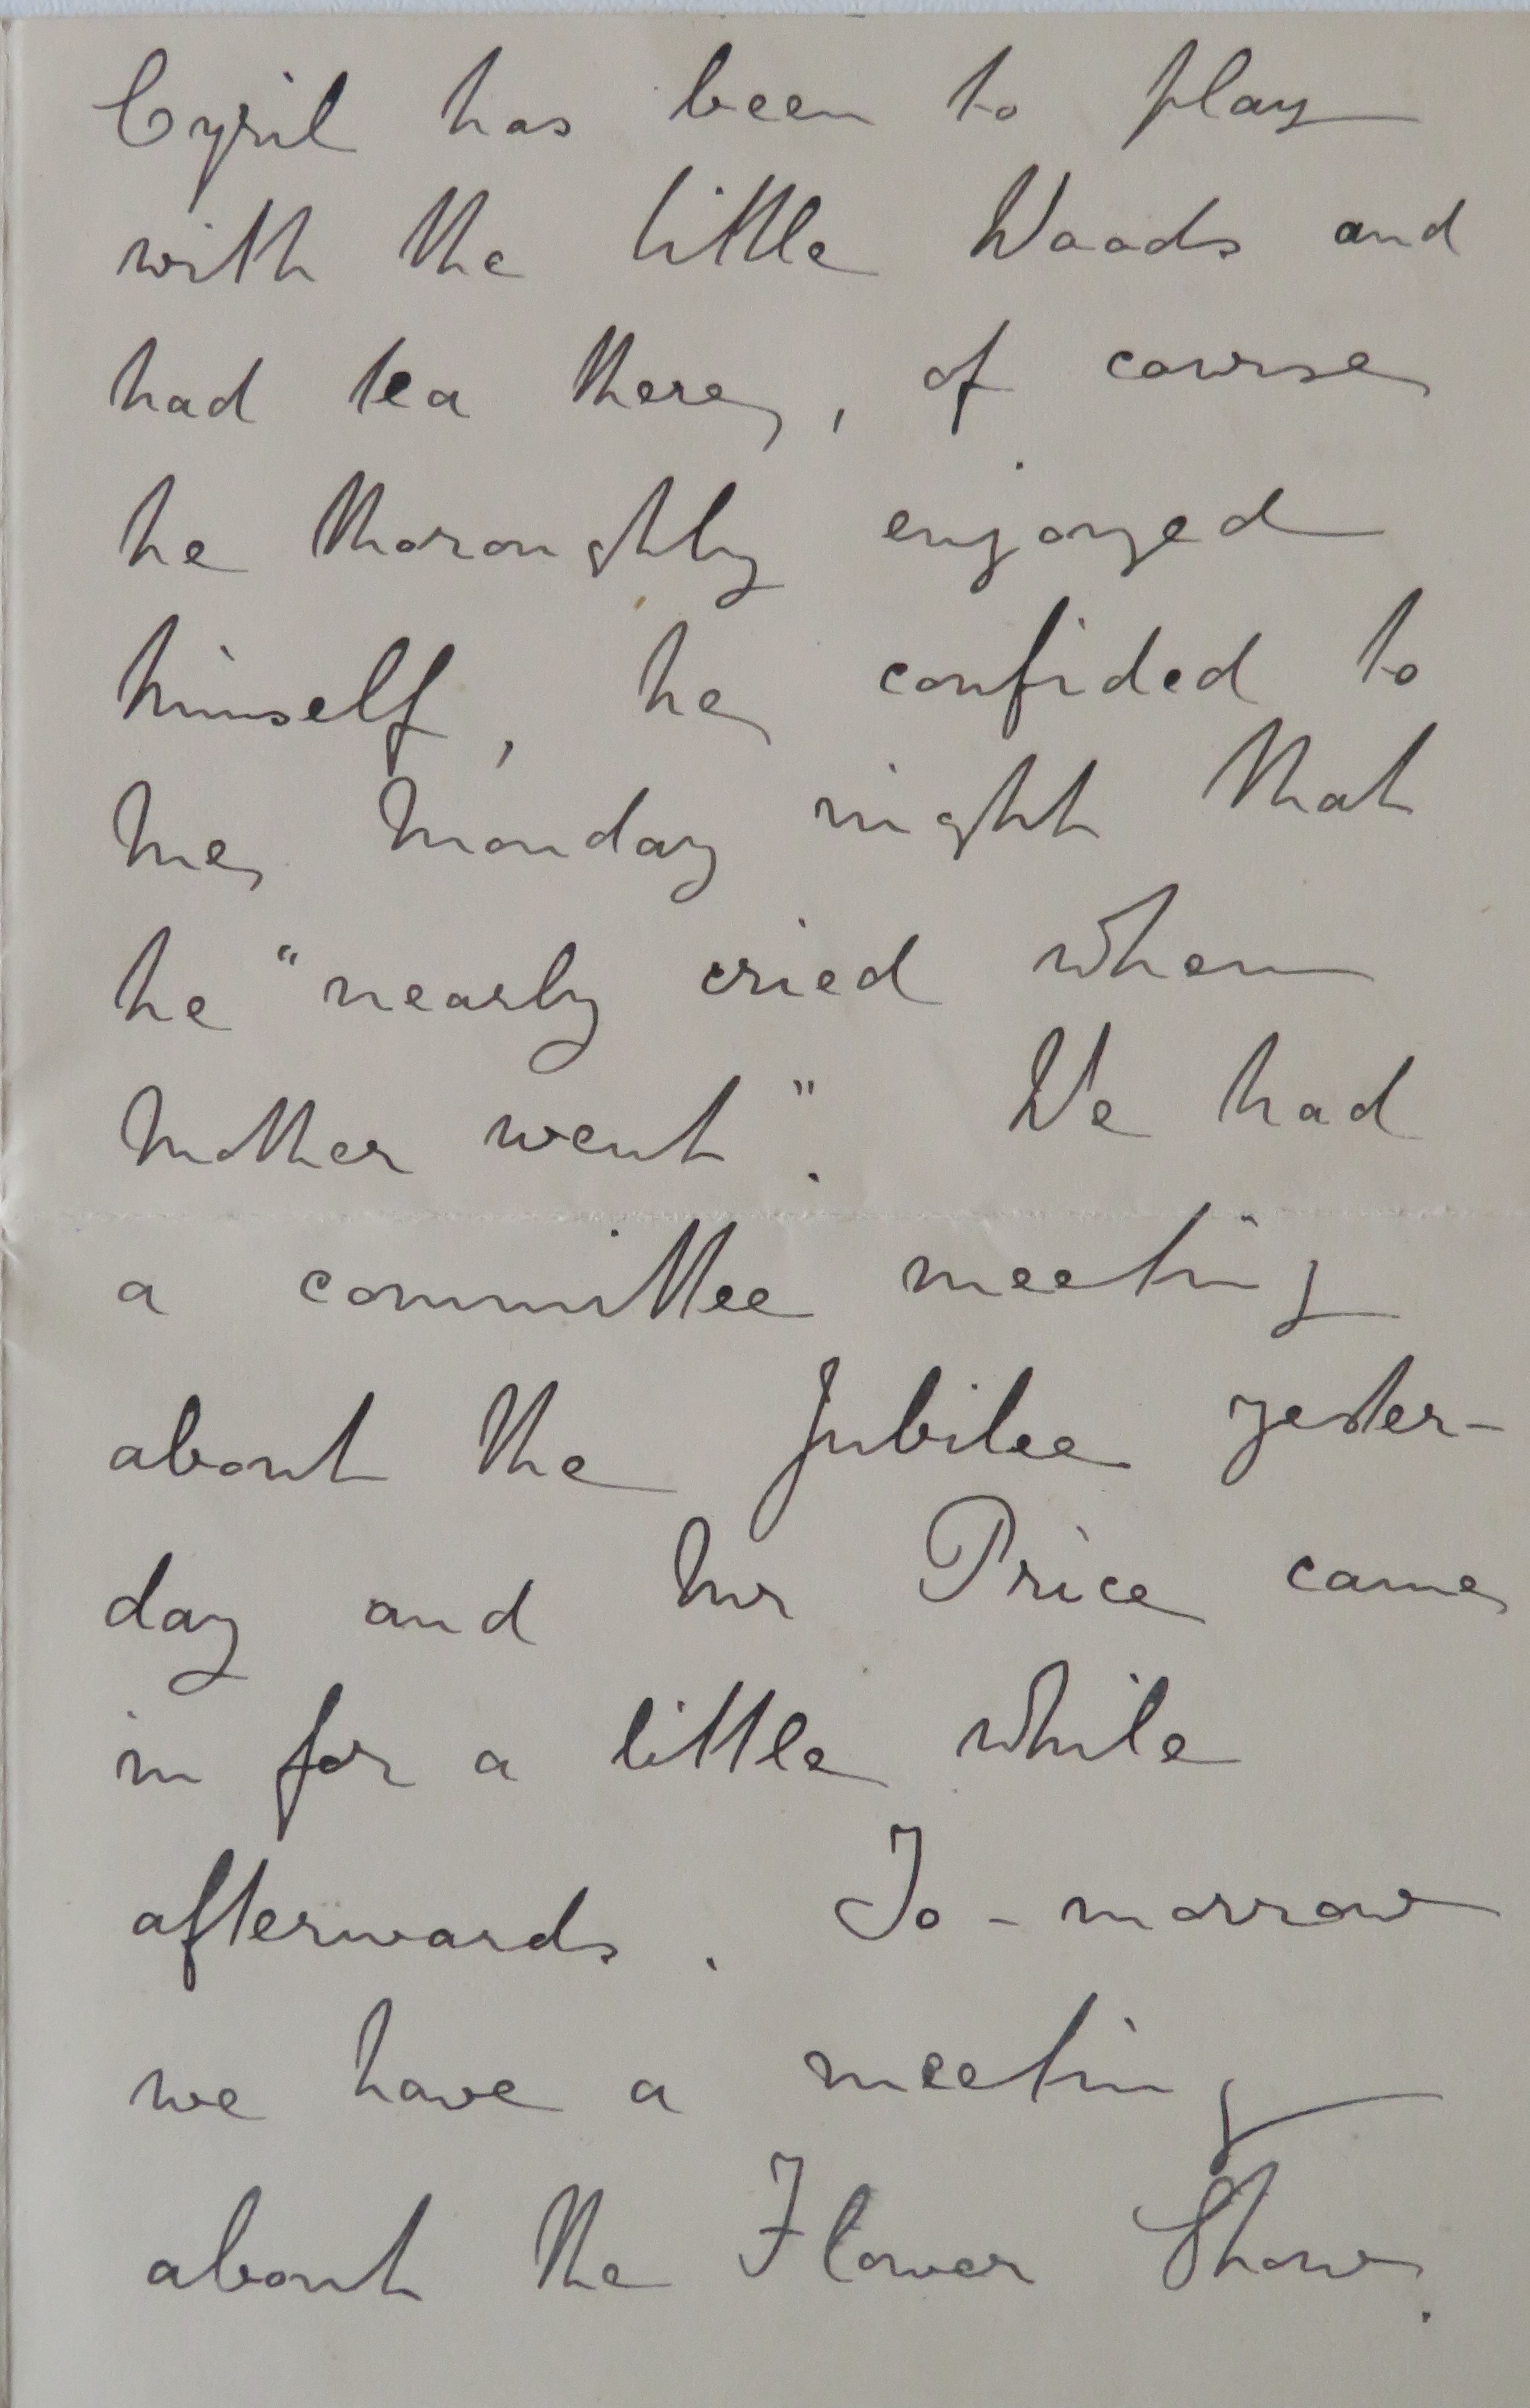 Cyril has been to play
with the little Woods and
had tea there, of course
he thoroughly enjoyed
himself, he confided to
me Monday night that
he "nearly cried when
Mother went". We had
a committee meeting
about the Jubilee yester-
day and Mr Price came
in for a little while
afterwards. To-morrow
we have a meeting
about the Flower Show.